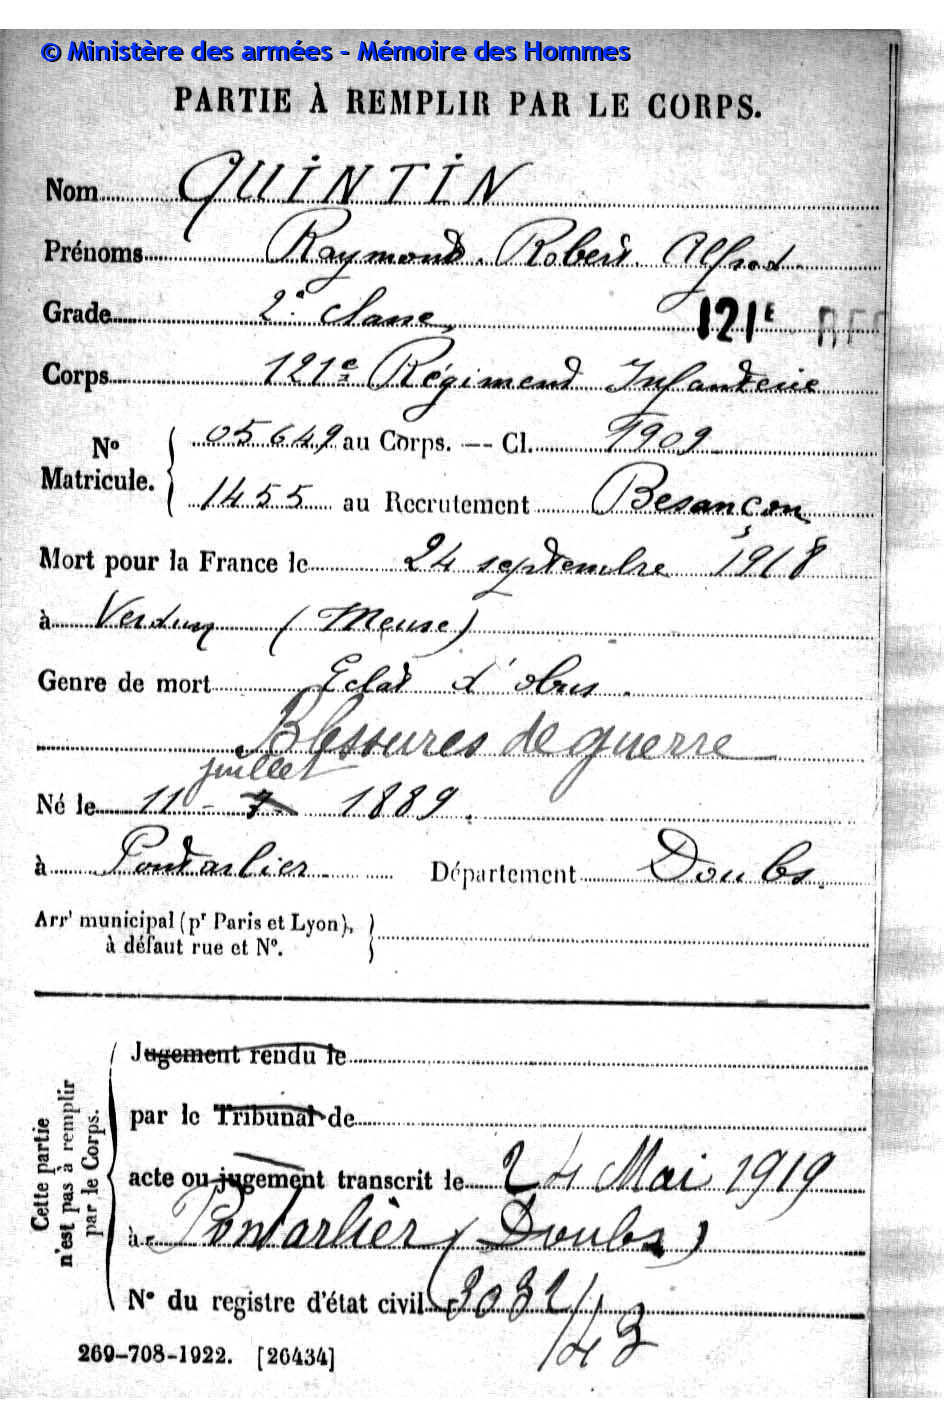 © Ministère des armées - Mémoire des Hommes
PARTIE À REMPLIR PAR LE CORPS.
Nom QUINTIN
Prénoms Raymond Robert Alfred
Grade 2e classe
121E
Corps 121e Régiment Infanterie
No Matricule. { 05649 au Corps. — Cl. 1909
1455 au Recrutement Besançon
Mort pour la France le 24 septembre 1918
à Verdun (Meuse)
Genre de mort Eclat d'obus.
Blessures de guerre
juillet
Né le 11 - 7 - 1889.
à Pontarlier Département Doubs.
Arrt municipal (pr Paris et Lyon), }
à défaut rue et No.
Cette partie
n'est pas à remplir
par le Corps.
Jugement rendu le
par le Tribunal de
acte ou jugement transcrit le 24 Mai 1919
à Pontarlier (Doubs)
No du registre d'état civil 3032/43
269-708-1922. [26434]